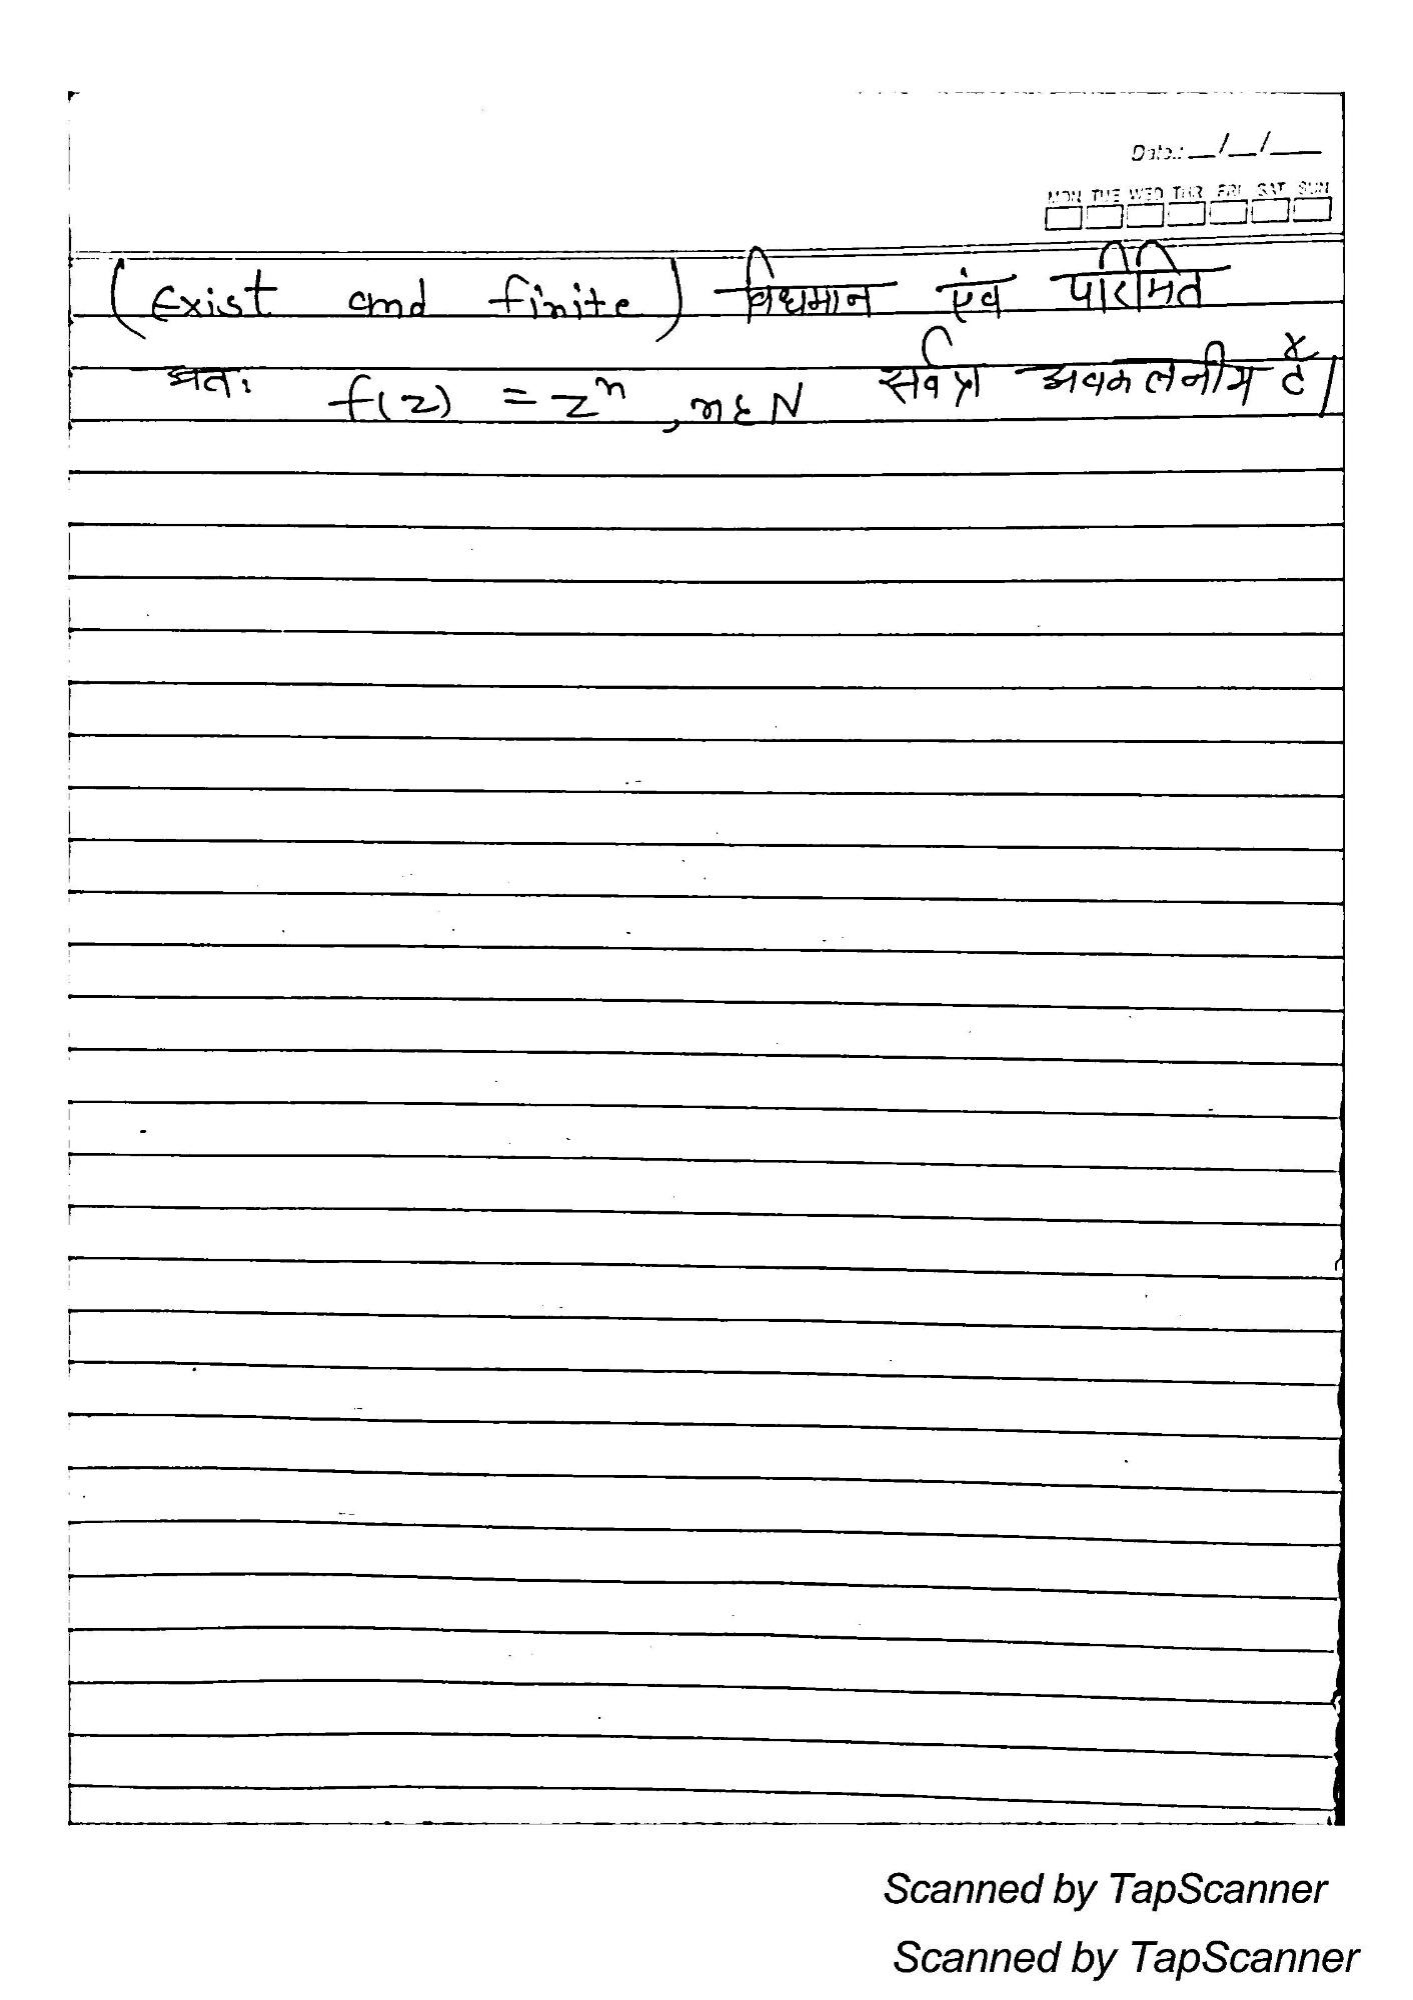 Date: __/__/___
MON TUE WED THR FRI SAT SUN
(Exist and finite) विधमान एंव परिमित
अतः f(z) = zⁿ, n ε N सर्वत्र अवकलनीय है।
Scanned by TapScanner
Scanned by TapScanner